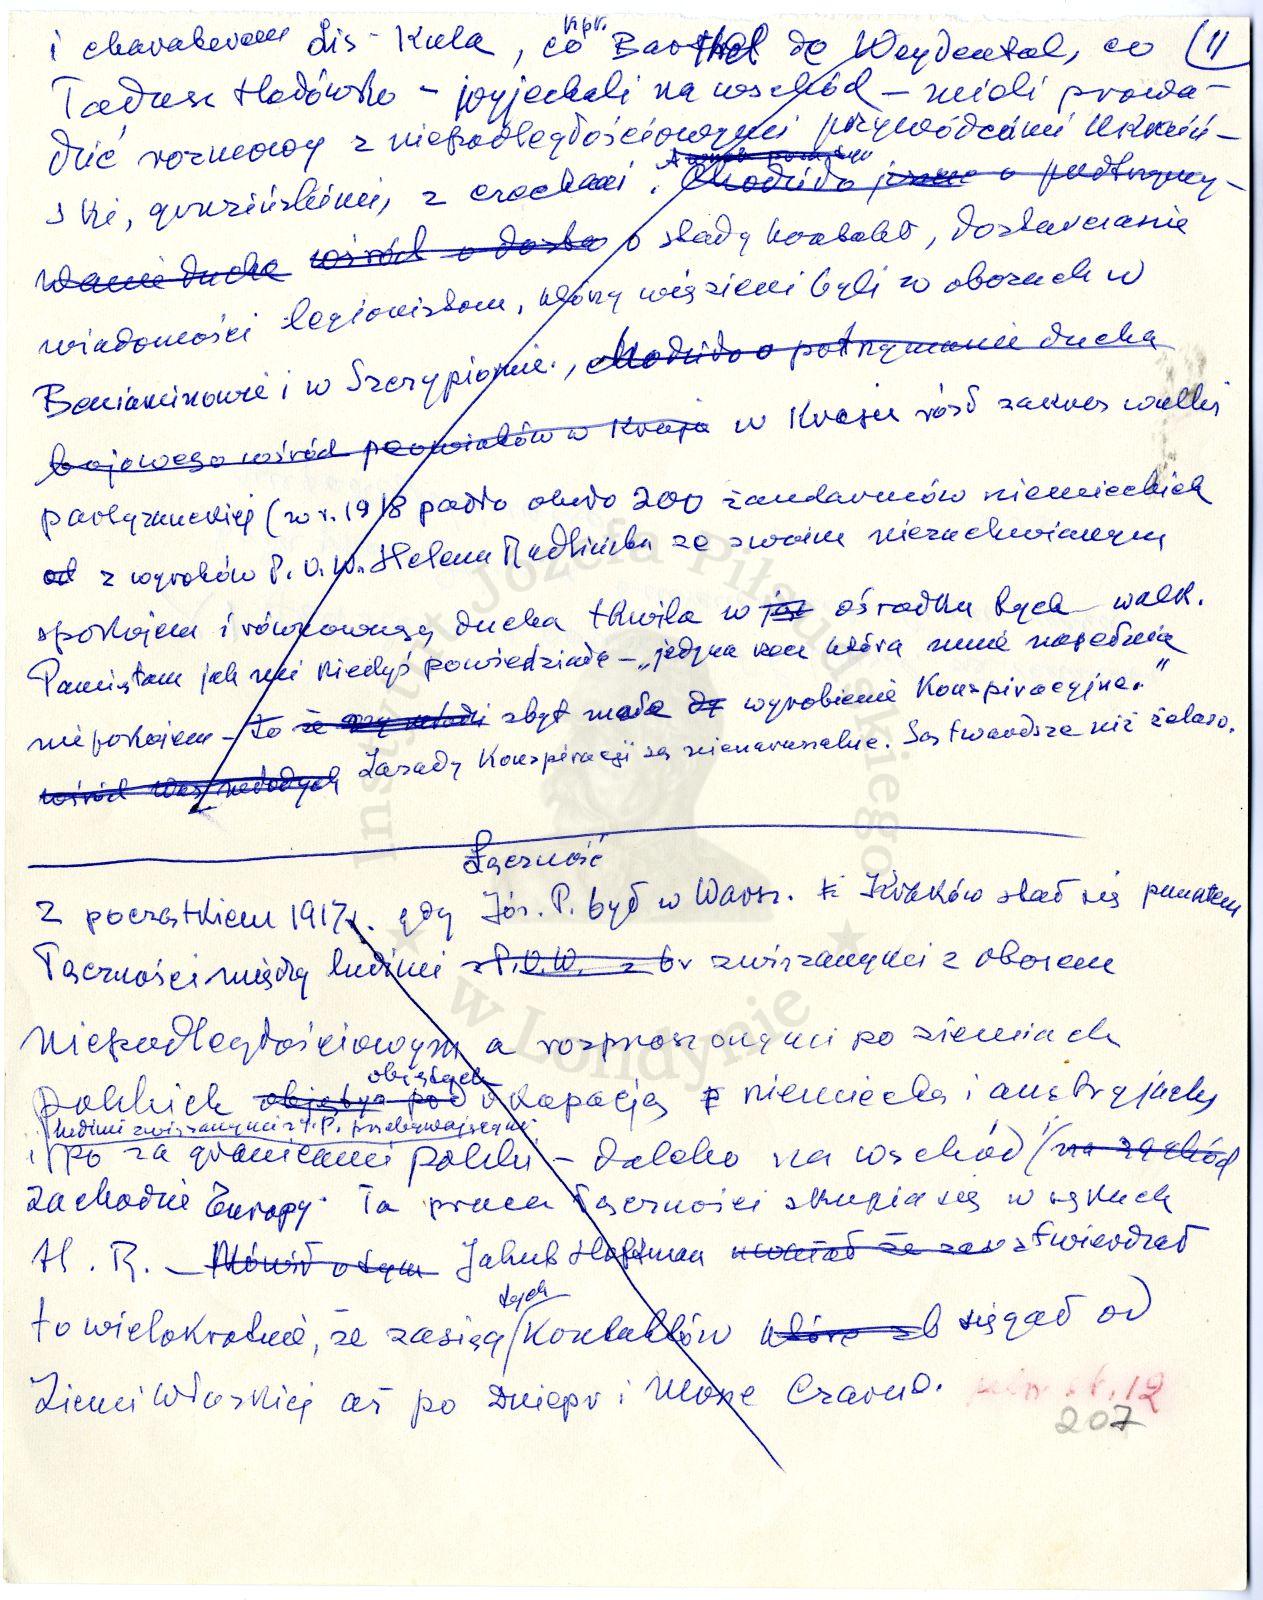 i charakterem Lis-Kula, co kpr. Barthel de Weydental, co (11
Tadusz Hołówko – wyjechali na wschód – mieli prowa-
dzić rozmowy z niepodległościowymi przywódcami ukraiń-
ski, gruzińskimi, z czechami. Chodziło o podtrzymy-
wanie ducha wśród o dosta o ślady kontakt, dostarczanie
wiadomości legionistom, którzy więzieni byli w obozach w
Beniaminowie i w Szczypiornie., chodziło o potrzymanie ducha
bojowego wśród peowiaków w Kraju w Kraju rósł zakres walki
partyzanckiej (w r. 1918 padło około 200 żandarmów niemieckich
od z wyroków P.O.W. Helena Radlińska ze swoim niezachwianym
spokojem i równowagą ducha tkwiła w ośrodku tych walk.
Pamiętam jak mi kiedyś powiedziała – „jedyna rzecz która mnie napełnia
niepokojem – to że zbyt małe wyrobienie Konspiracyjne."
wśród was młodych Zasady Konspiracji są nienaruszalne. Są twardsze niż żelazo.
Łączność
Z początkiem 1917 r. gdy Józ. P. był w Warsz. Kraków stał się punktem
Łączności między ludźmi z P.O.W. z br związanymi z obozem
Niepodległościowym a rozproszonymi po ziemiach
polskich objętych pod okupacją niemiecką i austryjacką
ludźmi związanymi z J.P. przebywającymi
i po za granicami polski – daleko na wschód (na zachód
zachodnie Europy. Ta praca łączności skupia się w rękach
H. R. – Mówił o tym Jakub Hoffman uważał że zaw stwierdzał
to wielokrotnie, że zasięg tych Kontaktów które sb sięgał od
Ziemi Włoskiej aż po Dniepr i Morze Czarne. st. 12
207
Instytut Józefa Piłsudskiego
w Londynie